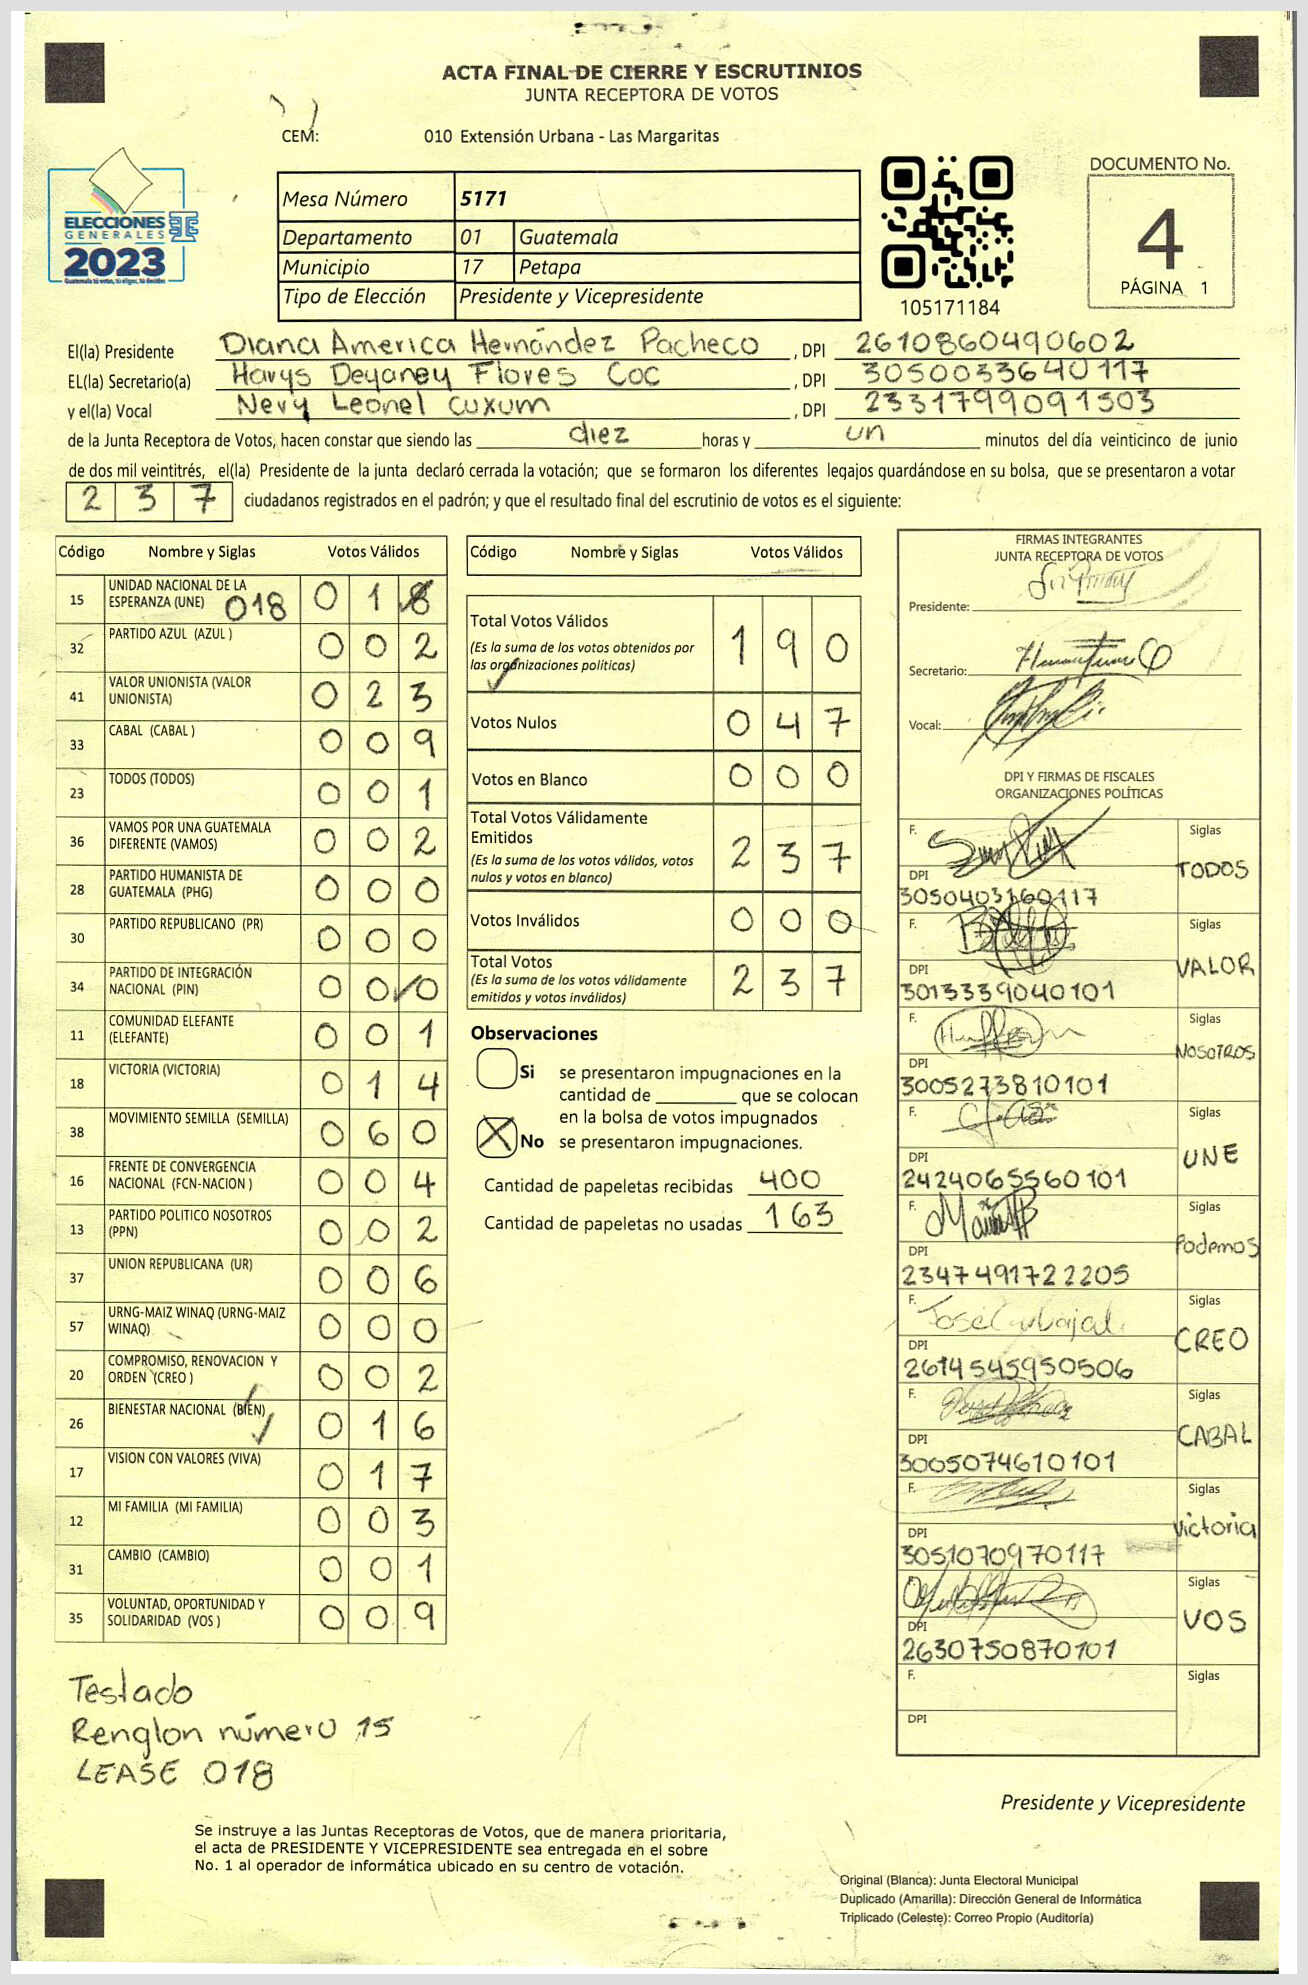 ACTA FINAL DE CIERRE Y ESCRUTINIOS
JUNTA RECEPTORA DE VOTOS
CEM: 010 Extensión Urbana - Las Margaritas
ELECCIONES
GENERALES
2023
Mesa Número 5171
Departamento 01 Guatemala
Municipio 17 Petapa
Tipo de Elección Presidente y Vicepresidente
105171184
DOCUMENTO No.
4
PÁGINA 1
El(la) Presidente Diana America Hernández Pacheco , DPI 2610860490602
EL(la) Secretario(a) Harys Deyaney Flores Coc , DPI 3050033640117
y el(la) Vocal Nevy Leonel Cuxum , DPI 2331799091503
de la Junta Receptora de Votos, hacen constar que siendo las diez horas y un minutos del día veinticinco de junio
de dos mil veintitrés, el(la) Presidente de la junta declaró cerrada la votación; que se formaron los diferentes legajos guardándose en su bolsa, que se presentaron a votar
2 3 7 ciudadanos registrados en el padrón; y que el resultado final del escrutinio de votos es el siguiente:
Código Nombre y Siglas Votos Válidos
15 UNIDAD NACIONAL DE LA ESPERANZA (UNE) 018 0 1 8
32 PARTIDO AZUL (AZUL ) 0 0 2
41 VALOR UNIONISTA (VALOR UNIONISTA) 0 2 3
33 CABAL (CABAL ) 0 0 9
23 TODOS (TODOS) 0 0 1
36 VAMOS POR UNA GUATEMALA DIFERENTE (VAMOS) 0 0 2
28 PARTIDO HUMANISTA DE GUATEMALA (PHG) 0 0 0
30 PARTIDO REPUBLICANO (PR) 0 0 0
34 PARTIDO DE INTEGRACIÓN NACIONAL (PIN) 0 0 0
11 COMUNIDAD ELEFANTE (ELEFANTE) 0 0 1
18 VICTORIA (VICTORIA) 0 1 4
38 MOVIMIENTO SEMILLA (SEMILLA) 0 6 0
16 FRENTE DE CONVERGENCIA NACIONAL (FCN-NACION ) 0 0 4
13 PARTIDO POLITICO NOSOTROS (PPN) 0 0 2
37 UNION REPUBLICANA (UR) 0 0 6
57 URNG-MAIZ WINAQ (URNG-MAIZ WINAQ) 0 0 0
20 COMPROMISO, RENOVACION Y ORDEN (CREO ) 0 0 2
26 BIENESTAR NACIONAL (BIEN) 0 1 6
17 VISION CON VALORES (VIVA) 0 1 7
12 MI FAMILIA (MI FAMILIA) 0 0 3
31 CAMBIO (CAMBIO) 0 0 1
35 VOLUNTAD, OPORTUNIDAD Y SOLIDARIDAD (VOS ) 0 0 9
Testado
Renglon número 15
LEASE 018
Código Nombre y Siglas Votos Válidos
Total Votos Válidos 1 9 0
(Es la suma de los votos obtenidos por
las organizaciones políticas)
Votos Nulos 0 4 7
Votos en Blanco 0 0 0
Total Votos Válidamente
Emitidos 2 3 7
(Es la suma de los votos válidos, votos
nulos y votos en blanco)
Votos Inválidos 0 0 0
Total Votos 2 3 7
(Es la suma de los votos válidamente
emitidos y votos inválidos)
Observaciones
Si se presentaron impugnaciones en la
cantidad de ________ que se colocan
en la bolsa de votos impugnados
X No se presentaron impugnaciones.
Cantidad de papeletas recibidas 400
Cantidad de papeletas no usadas 163
FIRMAS INTEGRANTES
JUNTA RECEPTORA DE VOTOS
Presidente:
Secretario:
Vocal:
DPI Y FIRMAS DE FISCALES
ORGANIZACIONES POLÍTICAS
F. Siglas
TODOS
DPI
3050403160117
F. Siglas
VALOR
DPI
3013339040101
F. Siglas
NOSOTROS
DPI
3005273810101
F. Siglas
UNE
DPI
2424065560101
F. Siglas
Podemos
DPI
2347491722205
F. José Carbajal Siglas
CREO
DPI
2614545950506
F. Siglas
CABAL
DPI
3005074610101
F. Siglas
Victoria
DPI
3051070970117
F. Siglas
VOS
DPI
2630750870101
F. Siglas
DPI
Presidente y Vicepresidente
Se instruye a las Juntas Receptoras de Votos, que de manera prioritaria,
el acta de PRESIDENTE Y VICEPRESIDENTE sea entregada en el sobre
No. 1 al operador de informática ubicado en su centro de votación.
Original (Blanca): Junta Electoral Municipal
Duplicado (Amarilla): Dirección General de Informática
Triplicado (Celeste): Correo Propio (Auditoría)